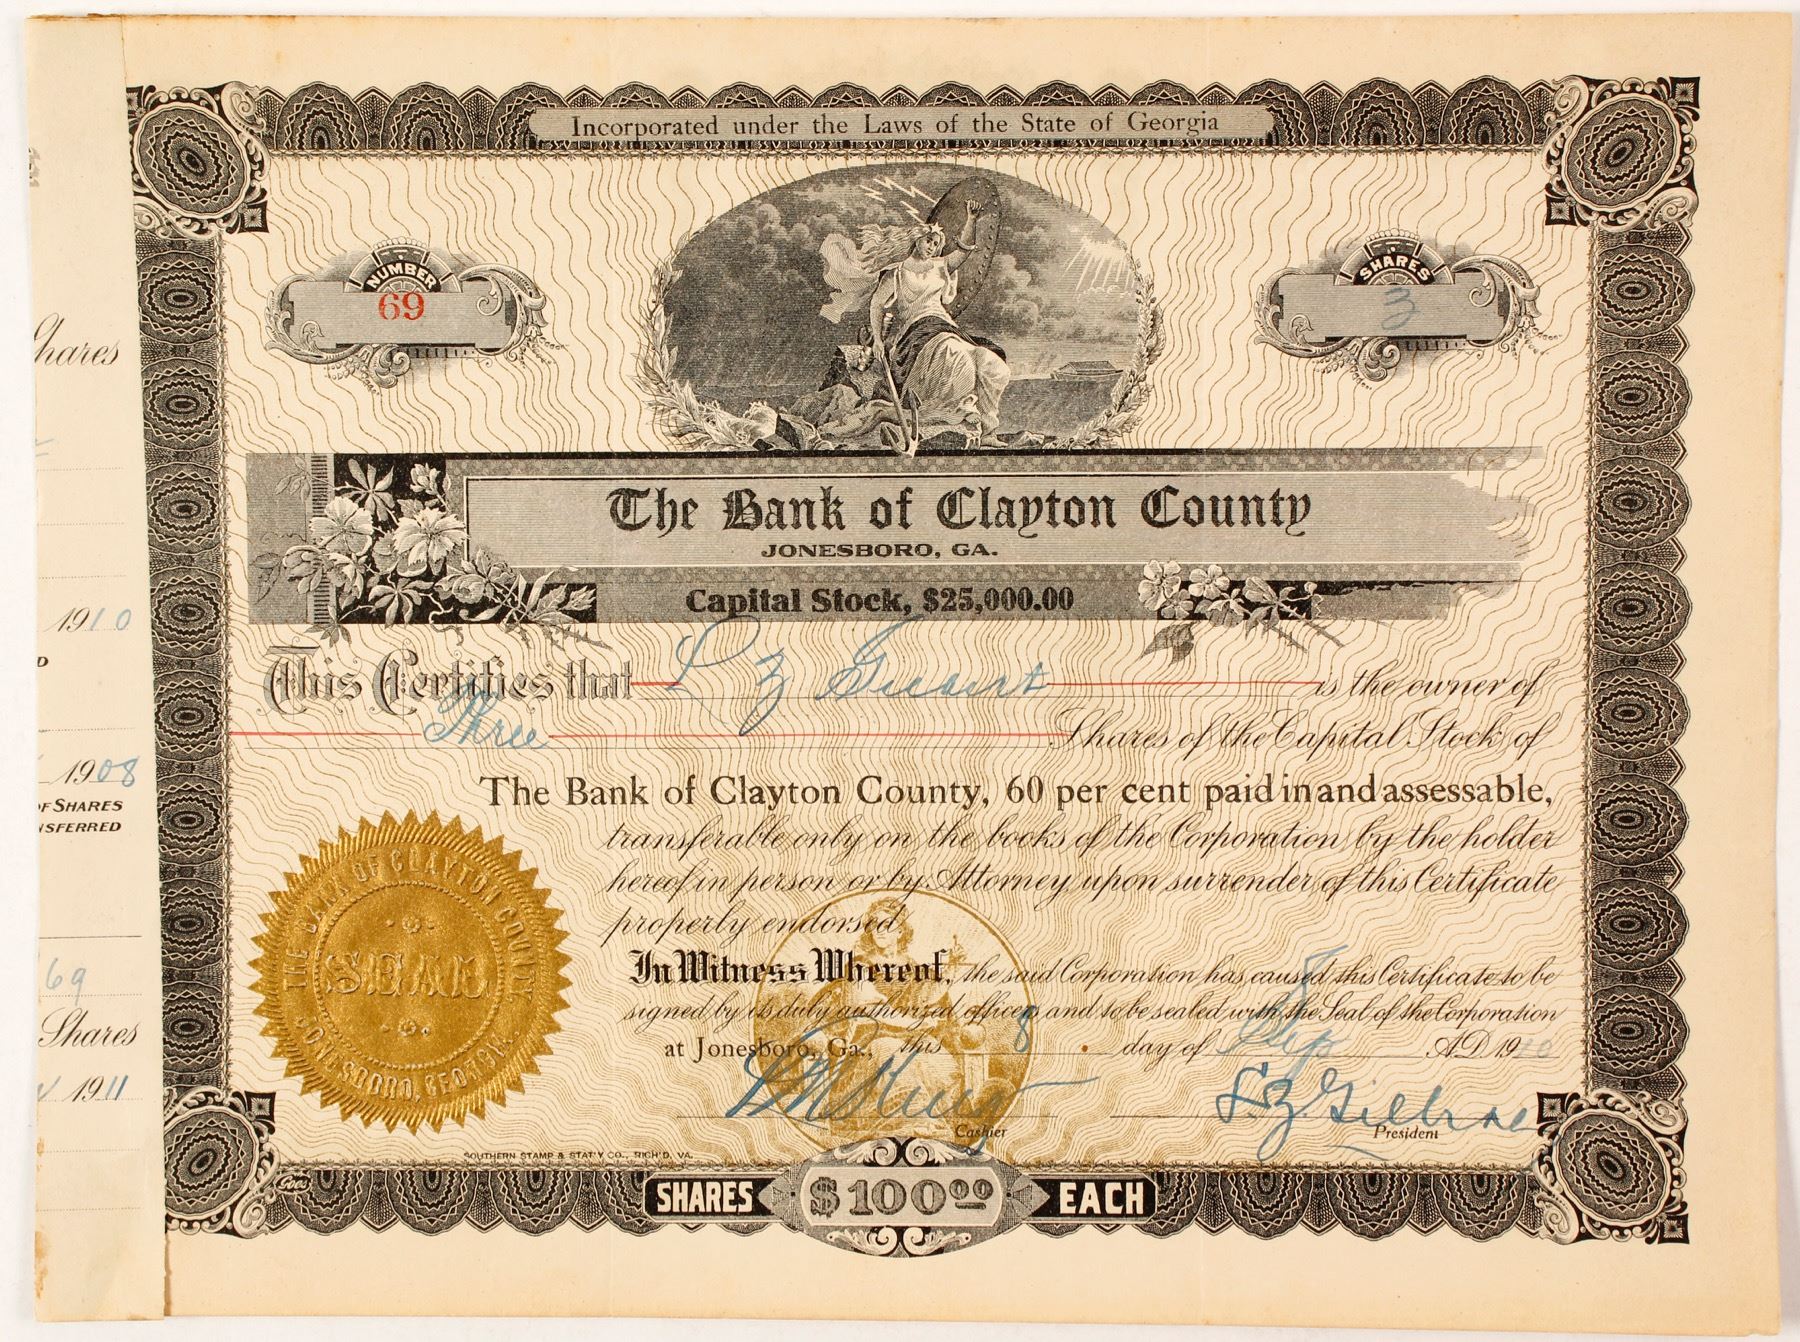 Incorporated under the Laws of the State of Georgia
NUMBER
69
SHARES
3
The Bank of Clayton County
JONESBORO, GA.
Capital Stock, $25,000.00
This Certifies that L Z is the owner of
Three Shares of the Capital Stock of
The Bank of Clayton County, 60 per cent paid in and assessable,
transferable only on the books of the Corporation by the holder
hereof in person or by Attorney, upon surrender of this Certificate
properly endorsed.
In Witness Whereof, the said Corporation has caused this Certificate to be
signed by its duly authorized officers and to be sealed with the Seal of the Corporation
at Jonesboro, Ga., this 8 day of Sep A.D. 1910
Cashier
President
THE BANK OF CLAYTON COUNTY
SEAL
JONESBORO, GEORGIA.
SOUTHERN STAMP & STAT'Y CO., RICH'D, VA.
Goes
SHARES $100.00 EACH
Shares
1910
D
1908
OF SHARES
NSFERRED
69
Shares
1911